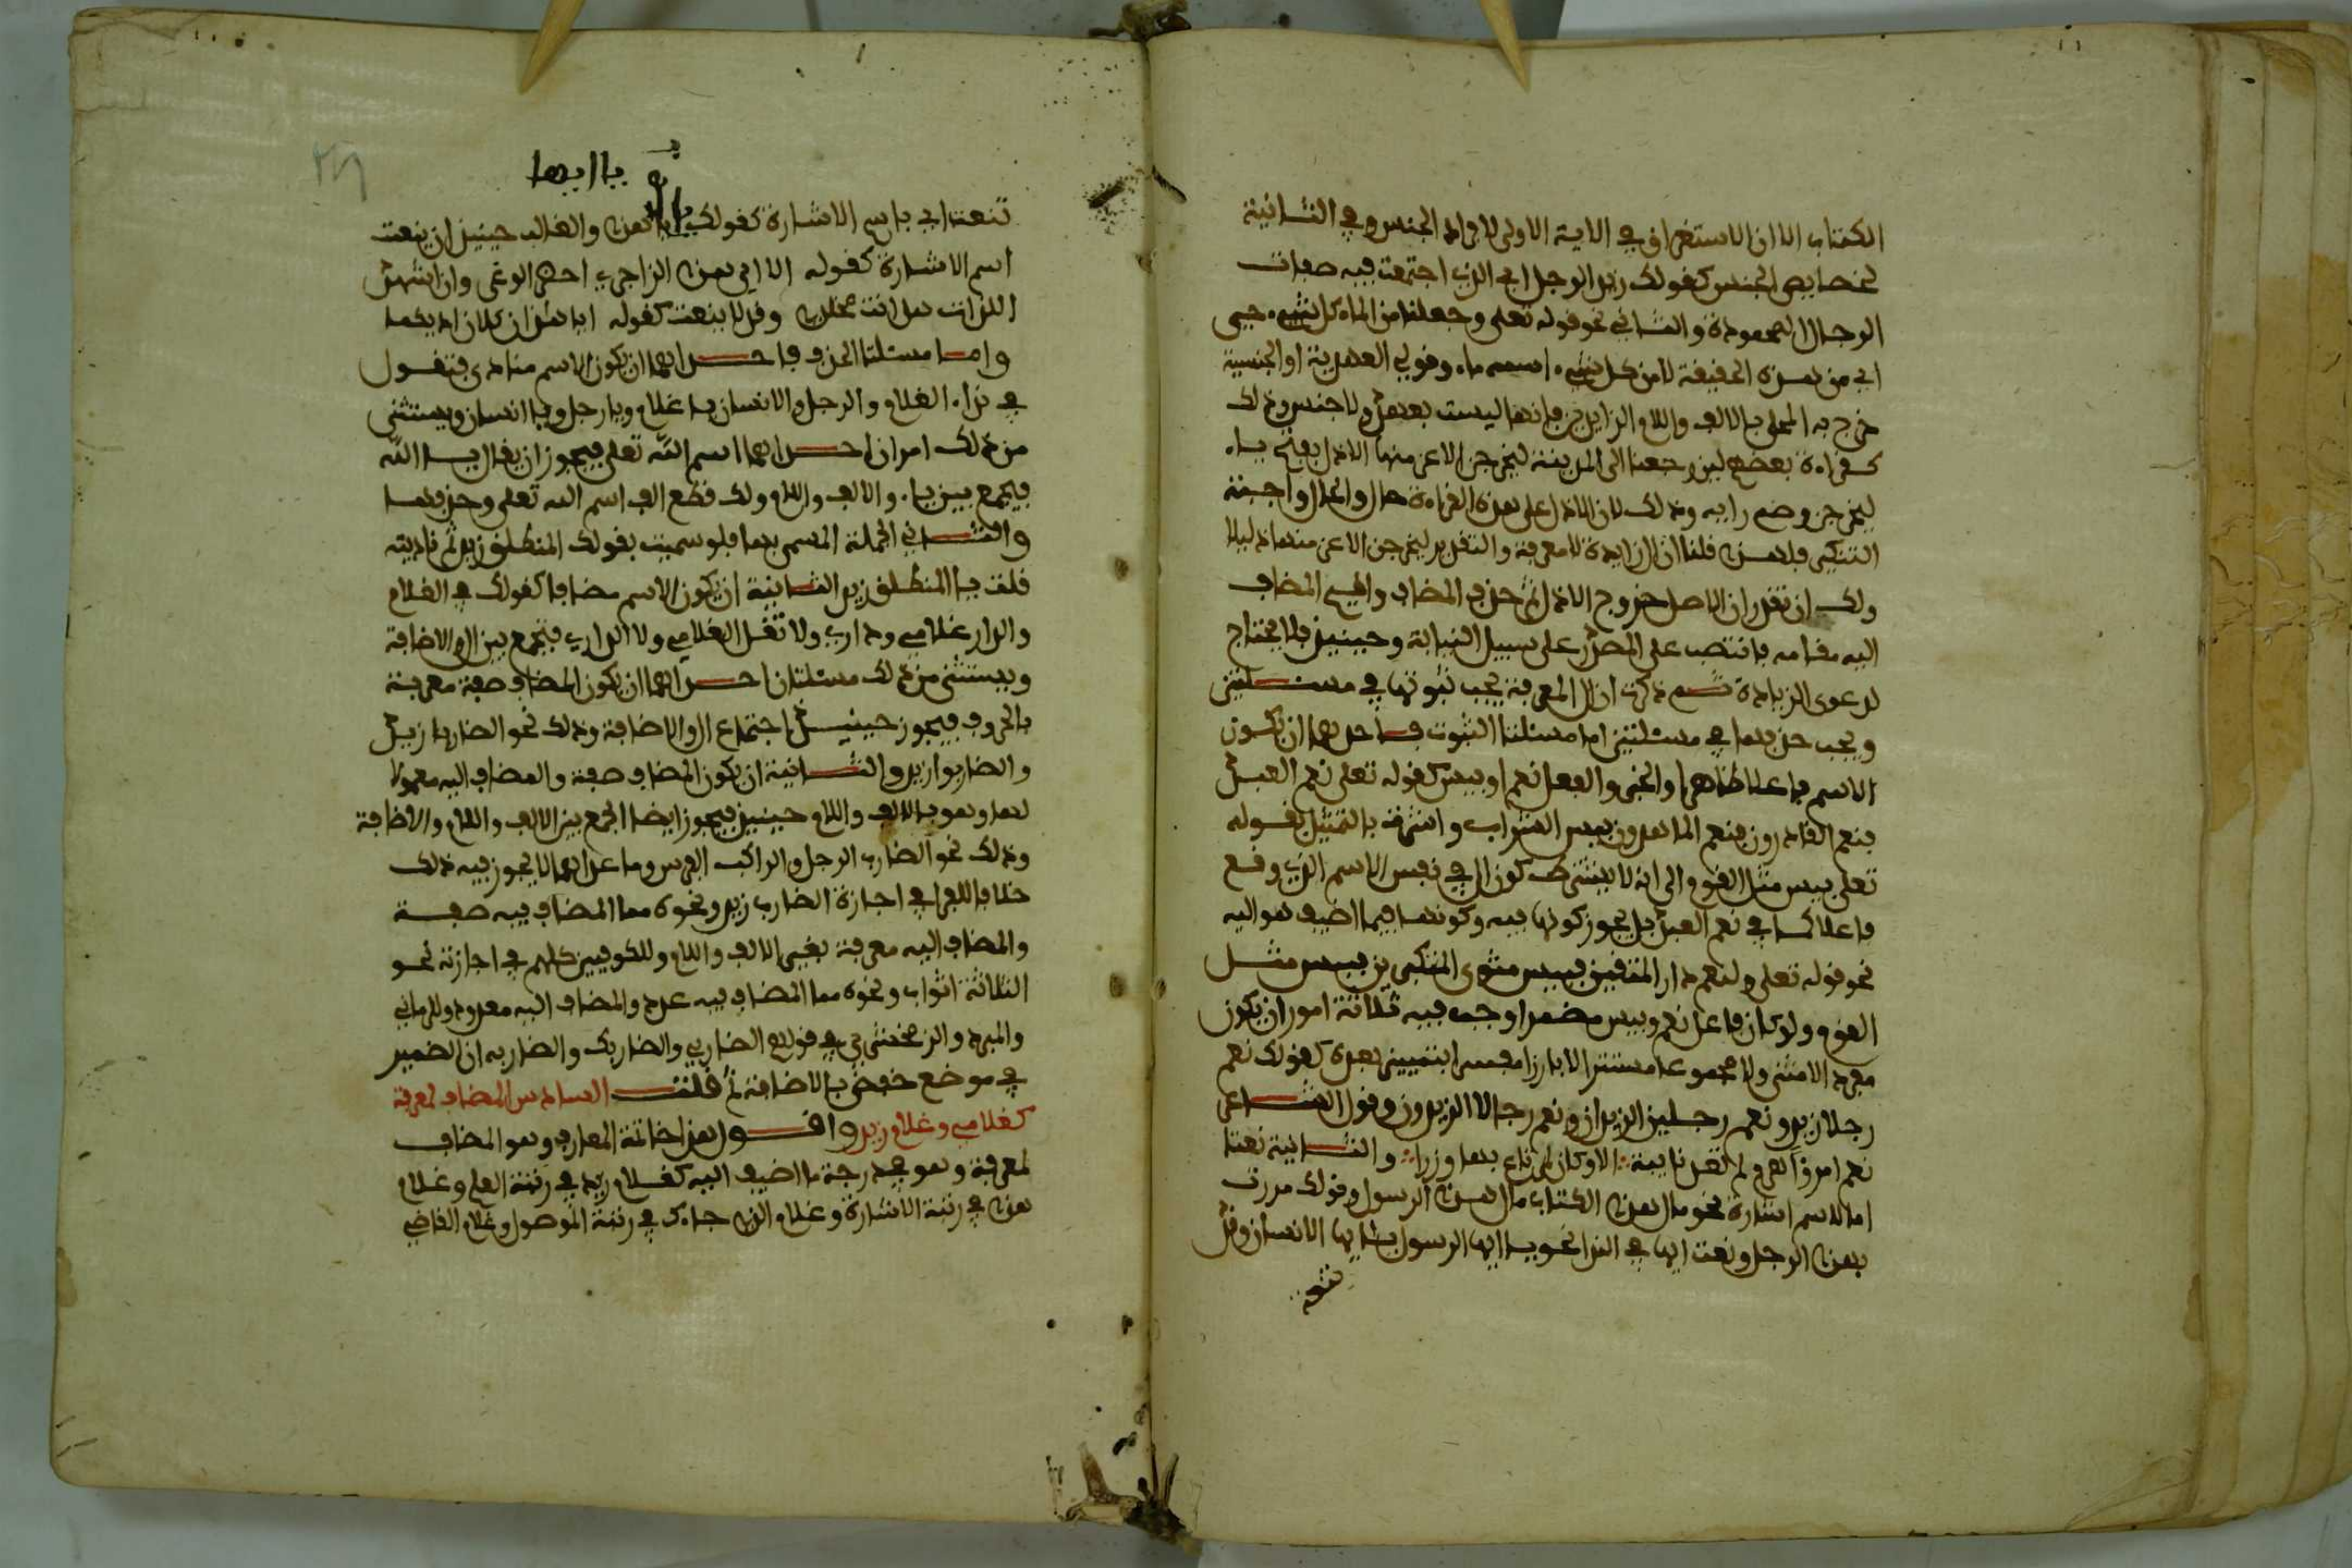 الكتاب الا ان الاستغراق في الاية الاولى لافراد الجنس وفي الثانية
لخصايص الجنس كقولك زيد الرجل اي الذي اجتمعت فيه صفات
الرجال المحمودة والثاني نحو قوله تعلى وجعلنا من الماء كل شيء حي
اي من هذه الحقيقة لا من كل شيء اسمه ماء وقولي العهدية او الجنسية
خرج به المحلى بالالف واللام الزايدين فانها ليست بعهد ولا جنس وذلك
كقراءة بعضهم لين رجعنا الى المدينة ليخرجن الاعز منها الاذل بفتح ياء
ليخرجن وضم رايه وذلك لان الاذل على هذه القراءة حال والحال واجبة
التنكير فلهذا قلنا ان ال زايدة لا معرفة والتقدير ليخرجن الاعز منها ذليلا
ولك ان تقدر ان الاصل خروج الاذل ثم حذف المضاف واقيم المضاف
اليه مقامه فانتصب على المصدر على سبيل النيابة وحينيذ فلا يحتاج
لدعوى الزيادة ثم ذكرت ان ال المعرفة يجب ثبوتها في مسئلتين
ويجب حذفها في مسئلتين اما مسئلتا الثبوت فاحداهما ان يكون
الاسم فاعلا ظاهرا والفعل نعم او بيس كقوله تعلى نعم العبد
فنعم القادرون فنعم الماهدون بيس الشراب واشرت بالتمثيل بقوله
تعلى بيس مثل القوم الى انه لا يشترط كون ال في نفس الاسم الذي وقع
فاعلا كما في نعم العبد بل يجوز كونها فيه وكونها فيما اضيف هو اليه
نحو قوله تعلى ولنعم دار المتقين فبيس مثوى المتكبرين بيس مثل
القوم ولو كان فاعل نعم وبيس مضمرا وجب فيه ثلاثة امور ان يكون
مفردا لا مثنى ولا مجموعا مستترا لا بارزا مفسرا بتمييز بعده كقولك نعم
رجلا زيد ونعم رجلين الزيدان ونعم رجالا الزيدون وقول الشاعر
نعم امرؤا هرم لم تعر نايبة الا وكان لمرتاع بها وزرا والثانية نعتا
اما لاسم اشارة نحو مال هذا الكتاب مال هذا الرسول وقولك مررت
بهذا الرجل ونعت ايها في الندا نحو يا ايها الرسول يا ايها الانسان وقد
يا ايها
تنعت اي باسم الاشارة كقولك يا ايهذا والغالب حينيذ ان ينعت
اسم الاشارة كقوله الا ايهذا الزاجري احضر الوغى وان اشهد
اللذات هل انت مخلدي وقد لا ينعت كقوله ايهاذان كلا زاديكما
واما مسئلتا الحذف فاحداهما ان يكون الاسم منادى فتقول
في نداء الغلام والرجل والانسان يا غلام ويا رجل ويا انسان ويستثنى
من ذلك امران احداهما اسم الله تعلى فيجوز ان يقال يا الله
فيجمع بين ياء والالف واللام ولك قطع الف اسم الله تعلى وحذفها
والثاني الجملة المسمى بها فلو سميت بقولك المنطلق زيد ثم ناديته
قلت يا المنطلق زيد الثانية ان يكون الاسم مضافا كقولك في الغلام
والدار غلامي وداري ولا تقل الغلامي ولا الداري فتجمع بين ال والاضافة
ويستثنى من ذلك مسئلتان احداهما ان يكون المضاف صفة معربة
بالحروف فيجوز حينيذ اجتماع ال والاضافة وذلك نحو الضاربا زيد
والضاربوا زيد والثانية ان يكون المضاف صفة والمضاف اليه معمولا
لها وهو بالالف واللام حينيذ فيجوز ايضا الجمع بين الالف واللام والاضافة
وذلك نحو الضارب الرجل والراكب الفرس وما عداهما لا يجوز فيه ذلك
خلافا للفراء في اجازة الضارب زيد ونحوه مما المضاف فيه صفة
والمضاف اليه معرفة بغير الالف واللام وللكوفيين كلهم في اجازته نحو
الثلاثة اثواب ونحوه مما المضاف فيه عدد والمضاف اليه معدود وللرماني
والمبرد والزمخشري في قولهم الضاربي والضاربك والضاربه ان الضمير
في موضع خفض بالاضافة ثم قلت السادس المضاف لمعرفة
كغلامي وغلام زيد واقول هذا خاتمة المعارف وهو المضاف
لمعرفة وهو في درجة ما اضيف اليه كغلام زيد في رتبة العلم وغلام
هذا في رتبة الاشارة وغلام الذي جاءك في رتبة الموصول وغلام القاضي